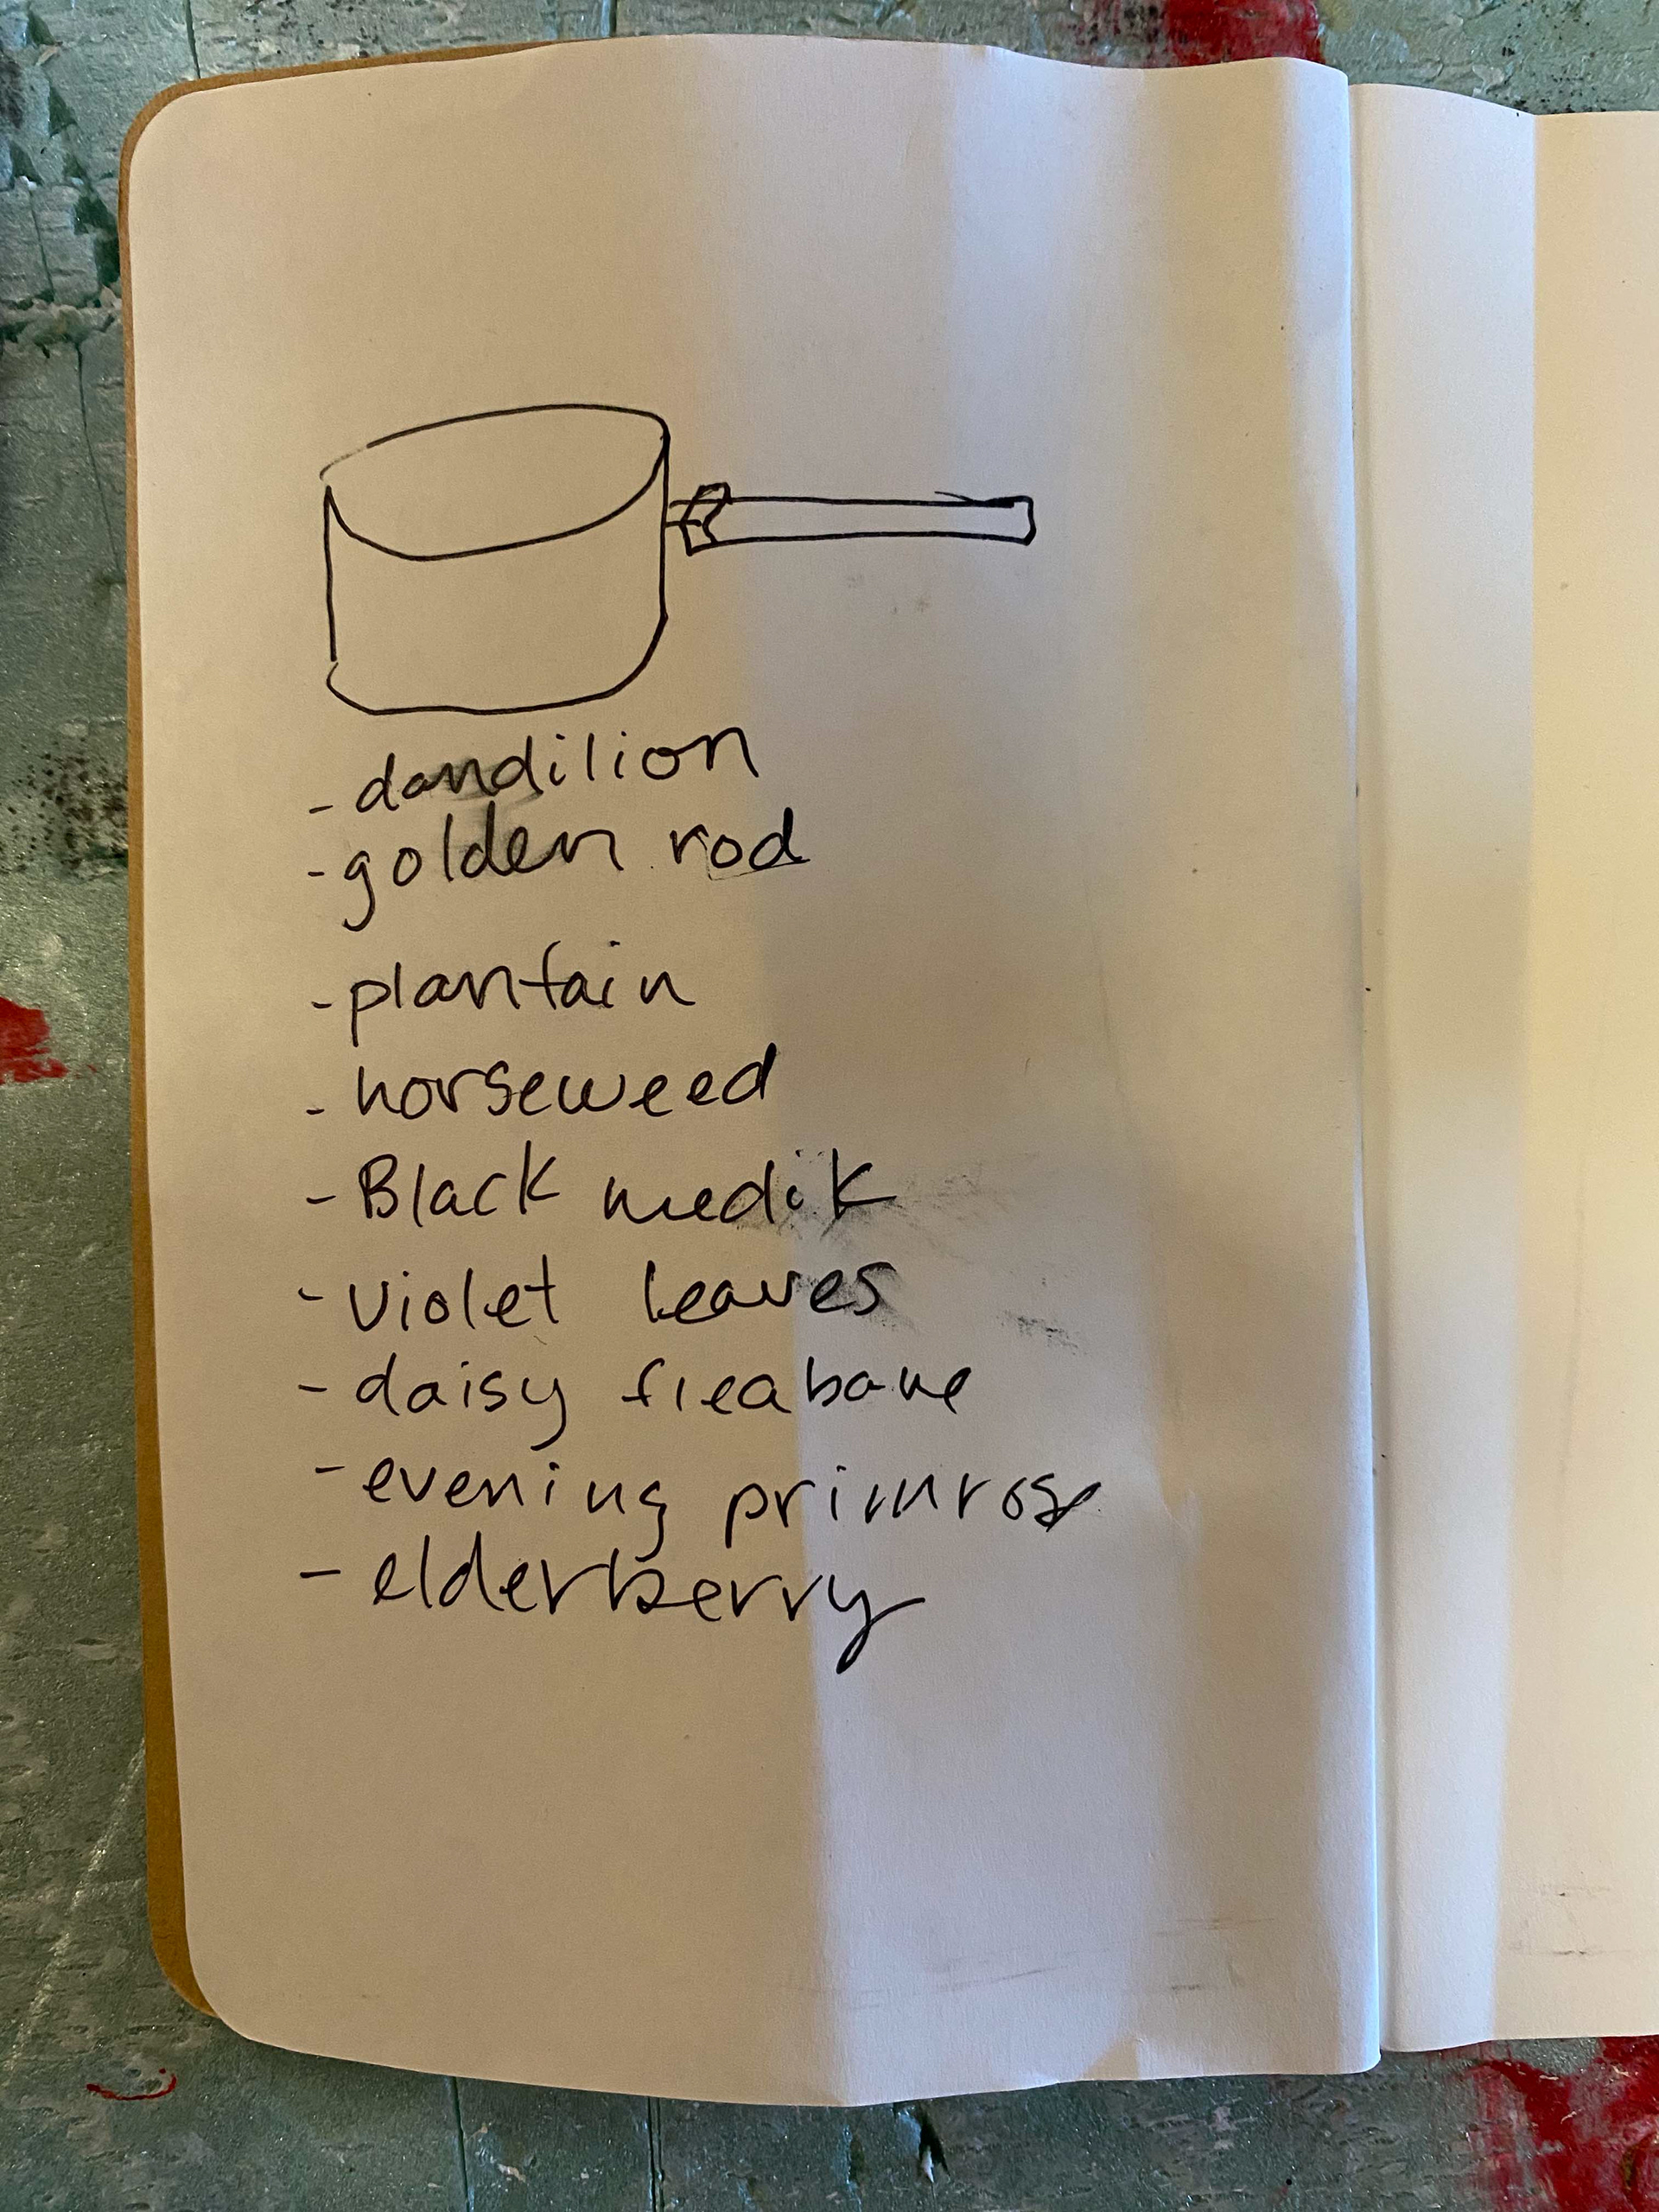 - dandilion
- golden rod
- plantain
- horseweed
- Black medik
- violet leaves
- daisy fleabane
- evening primrose
- elderberry